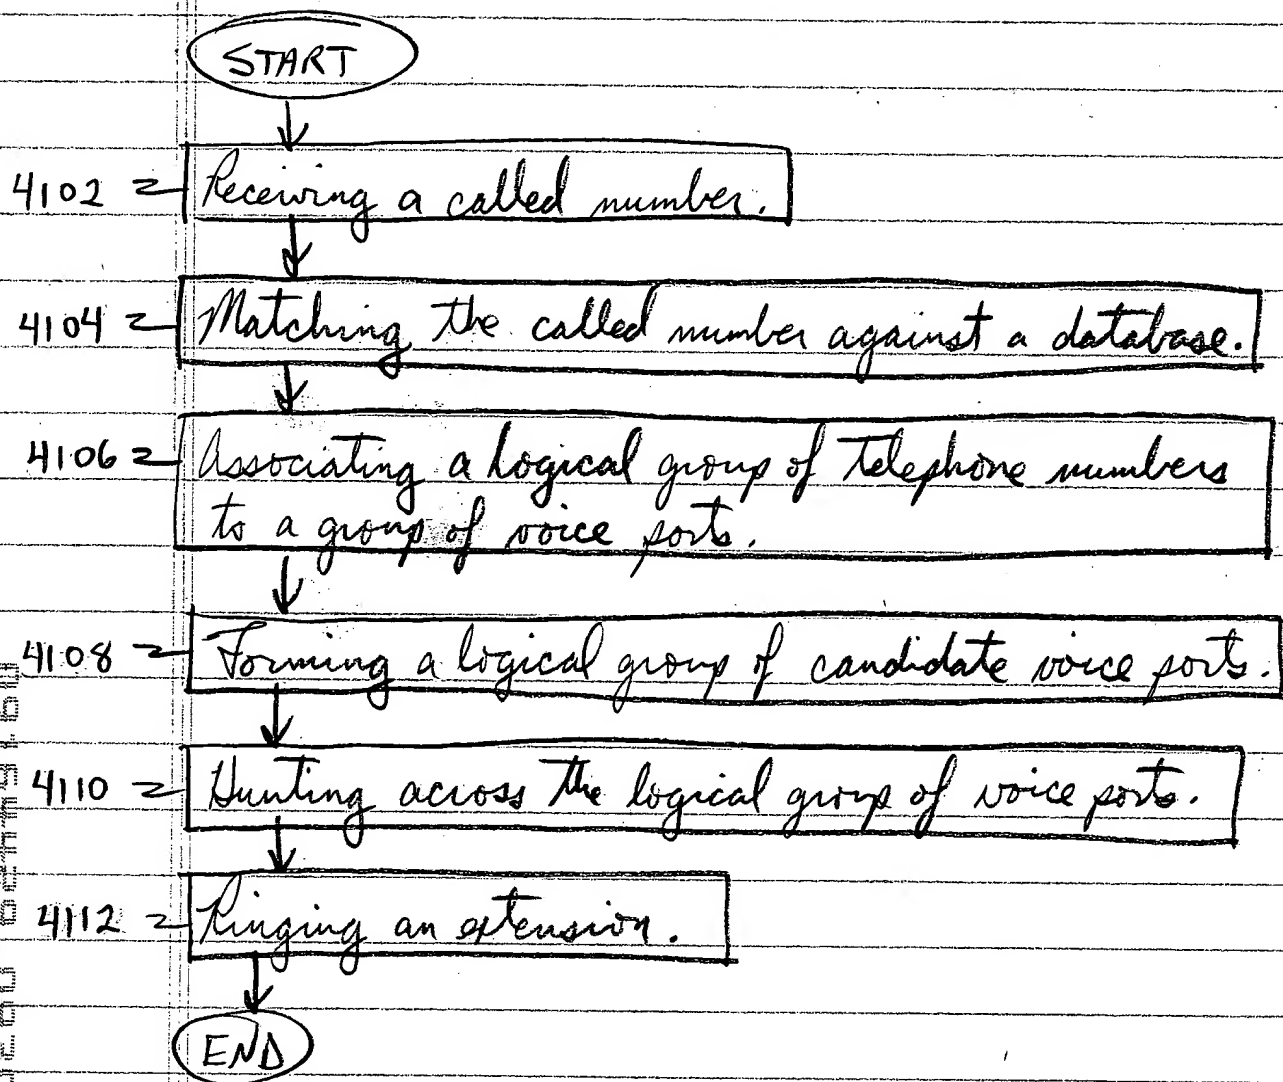 START
4102 Receiving a called number.
4104 Matching the called number against a database.
4106 Associating a logical group of telephone numbers
to a group of voice ports.
4108 Forming a logical group of candidate voice ports.
4110 Hunting across the logical group of voice ports.
4112 Ringing an extension.
END